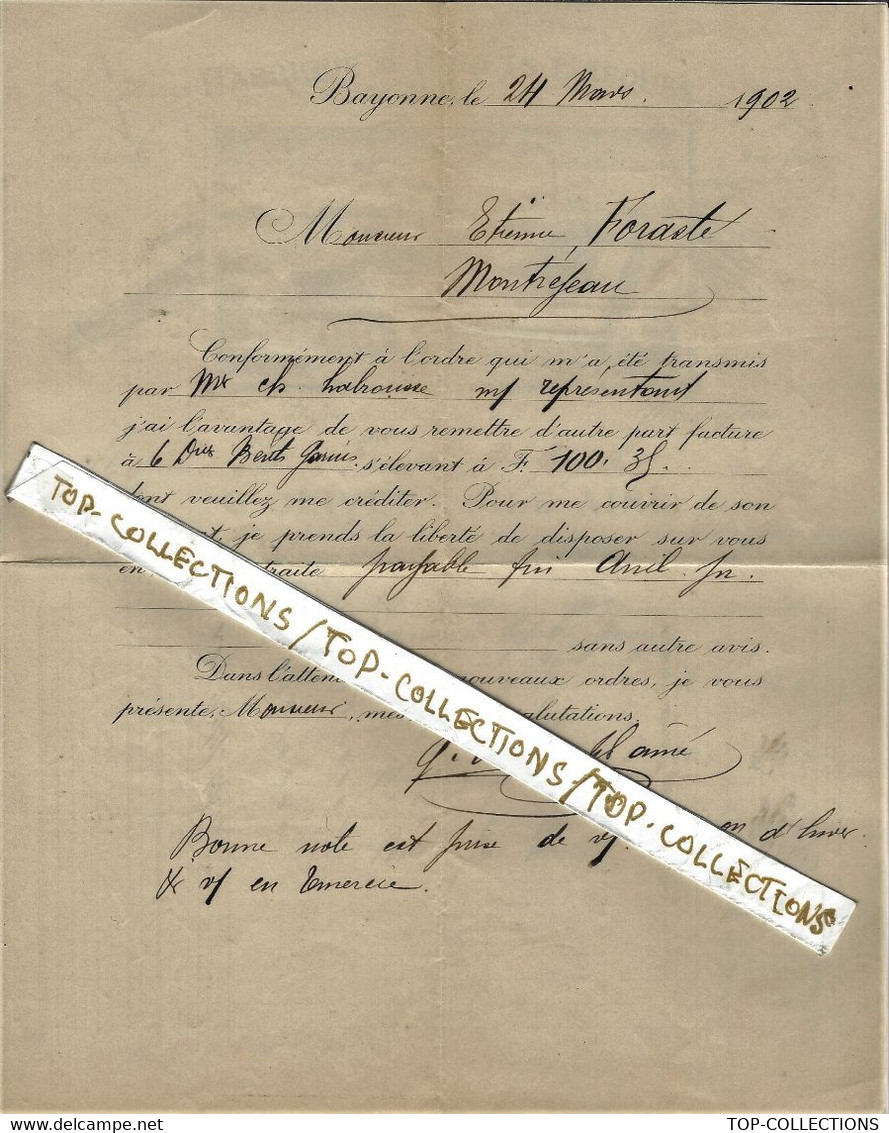 Bayonne, le 24 Mars 1902
Monsieur Etienne Foraste
Montréjeau
Conformément à l'ordre qui m'a été transmis
par Mr Ch. Labrousse m/ représentant
j'ai l'avantage de vous remettre d'autre part facture
à 6 Dnes Berets Garnis s'élevant à F. 100.35.
dont veuillez me créditer. Pour me couvrir de son
je prends la liberté de disposer sur vous
en traite payable fin Avril
sans autre avis.
Dans l'atten nouveaux ordres, je vous
présente, Monsieur, mes salutations.
aîné
Bonne note est prise de v/ on d'hiver.
& v/ en remercie.
TOP-COLLECTIONS/TOP-COLLECTIONS/TOP-COLLECTIONS
TOP-COLLECTIONS